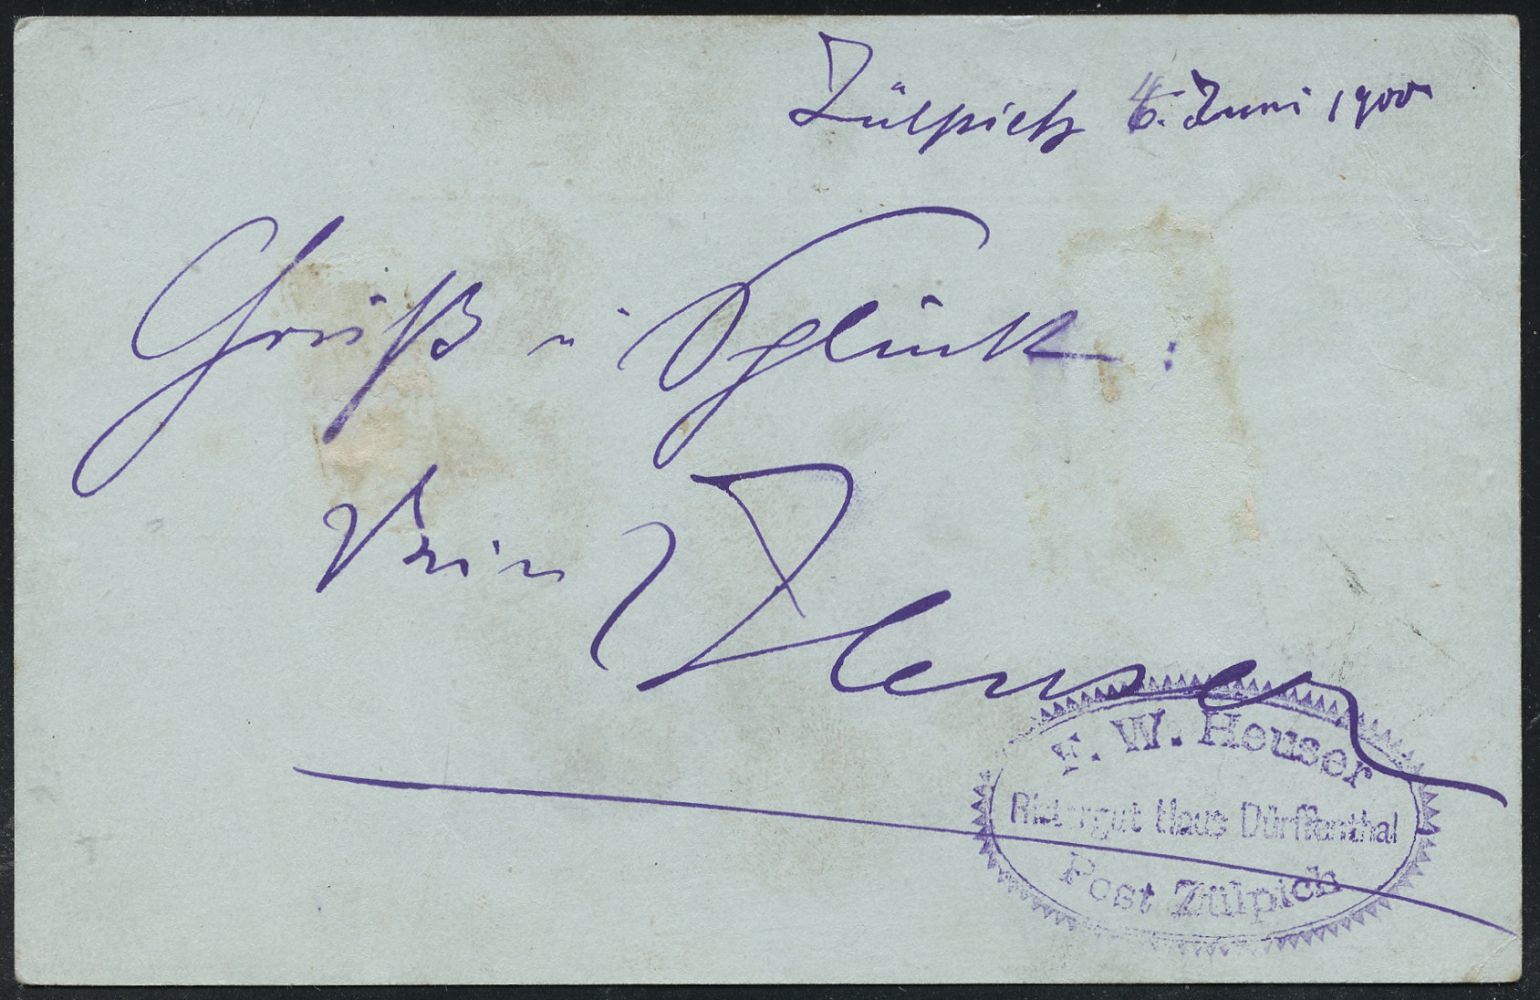 Zülpich 6. Juni 1900
Gruß u
Heuser
F. W. Heuser
Rittergut Haus Dürffenthal
Post Zülpich